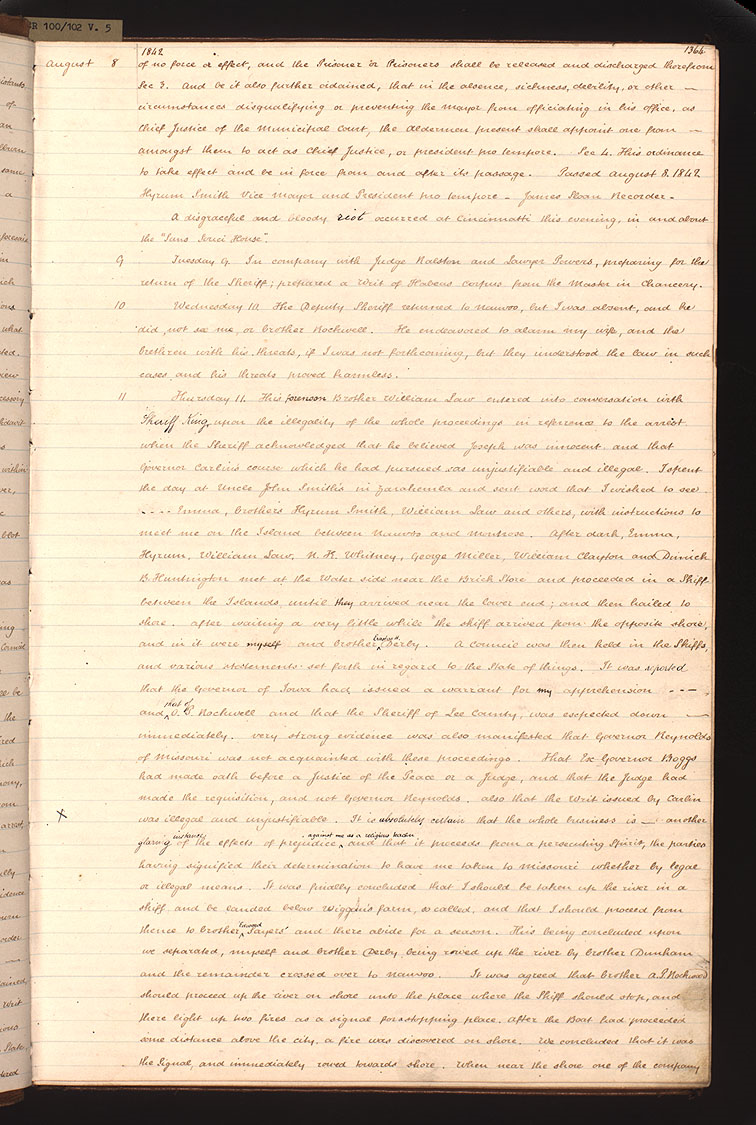 R 100/102 V. 5
1842 1364
August 8 of no force or effect, and the Prisoner or Prisoners shall be released and discharged therefrom
Sec 3. And be it also further ordained, that in the absence, sickness, debility, or other —
circumstances disqualifying or preventing the Mayor from officiating in his office, as
Chief Justice of the Municipal Court, the aldermen present shall appoint one from —
amongst them to act as Chief Justice, or president pro tempore. Sec 4. This ordinance
to take effect and be in force from and after its passage. Passed August 8. 1842
Hyrum Smith Vice Mayor and President pro tempore - James Sloan Recorder -
A disgraceful and bloody riot occurred at Cincinnatti this evening, in and about
the "Sans Souci House".
9 Tuesday 9. In company with Judge Ralston and Lawyer Powers, preparing for the
return of the Sheriff; prepared a Writ of Habeus corpus from the Master in Chancery.
10 Wednesday 10. The Deputy Sheriff returned to Nauvoo, but I was absent, and he
did not see me, or brother Rockwell. He endeavored to alarm my wife, and the
brethren with his threats, if I was not forthcoming, but they understood the law in such
cases and his threats proved harmless.
11 Thursday 11. This forenoon Brother William Law entered into conversation with
Sheriff King, upon the illegality of the whole proceedings in reference to the arrest.
when the Sheriff acknowledged that he believed Joseph was innocent and that
Governor Carlin's course which he had pursued was unjustifiable and illegal. I spent
the day at Uncle John Smith's in Zarahemla and sent word that I wished to see
---- Emma, brothers Hyrum Smith, William Law and others, with instructions to
meet me on the Island between Nauvoo and Montrose. After dark, Emma,
Hyrum, William Law, N. K. Whitney, George Miller, William Clayton and Dimick
B. Huntington met at the Water side near the Brick Store and proceeded in a Skiff
between the Islands until they arrived near the lower end; and then hailed to
shore. after waiting a very little while the skiff arrived from the opposite shore,
and in it were myself and brother Erastus H. Derby. A council was then held in the Skiffs,
and various statements set forth in regard to the State of things. It was reported
that the Governor of Iowa had issued a warrant for my apprehension ---
and that of O. P. Rockwell and that the Sheriff of Lee County, was expected down —
immediately. very strong evidence was also manifested that Governor Reynolds
of Missouri was not acquainted with these proceedings. That Ex-Governor Boggs
had made oath before a Justice of the Peace or a Judge, and that the Judge had
made the requisition, and not Governor Reynolds. also that the Writ issued by Carlin
X was illegal and unjustifiable. It is absolutely certain that the whole business is — another
glaring instance of the effects of prejudice against me as a religious teacher, and that it proceeds from a persecuting Spirit, the parties
having signified their determination to have me taken to Missouri whether by legal
or illegal means. It was finally concluded that I should be taken up the river in a
skiff and be landed below Wiggan's farm, so called, and that I should proceed from
thence to brother Edward Sayers' and there abide for a season. This being concluded upon
we separated, myself and brother Derby being rowed up the river by brother Dunham
and the remainder crossed over to Nauvoo. It was agreed that brother A. P. Rockwood
should proceed up the river on shore unto the place where the Skiff should stop, and
there light up two fires as a signal for stopping place. After the Boat had proceeded
some distance above the city, a fire was discovered on shore. We concluded that it was
the Signal, and immediately rowed towards shore. When near the shore one of the company